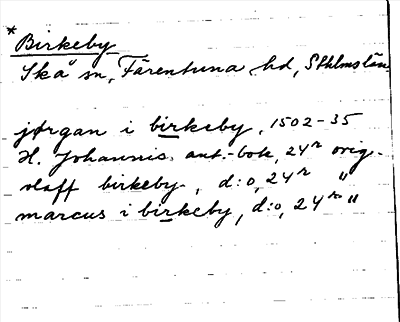 * Birkeby
Skå sn, Färentuna hd, Sthlms län.
jørgan i birkeby, 1502-35
H. Johannis ant.-bok, 24r orig.
olaff birkeby, d:o, 24r "
marcus i birkeby, d:o, 24r "